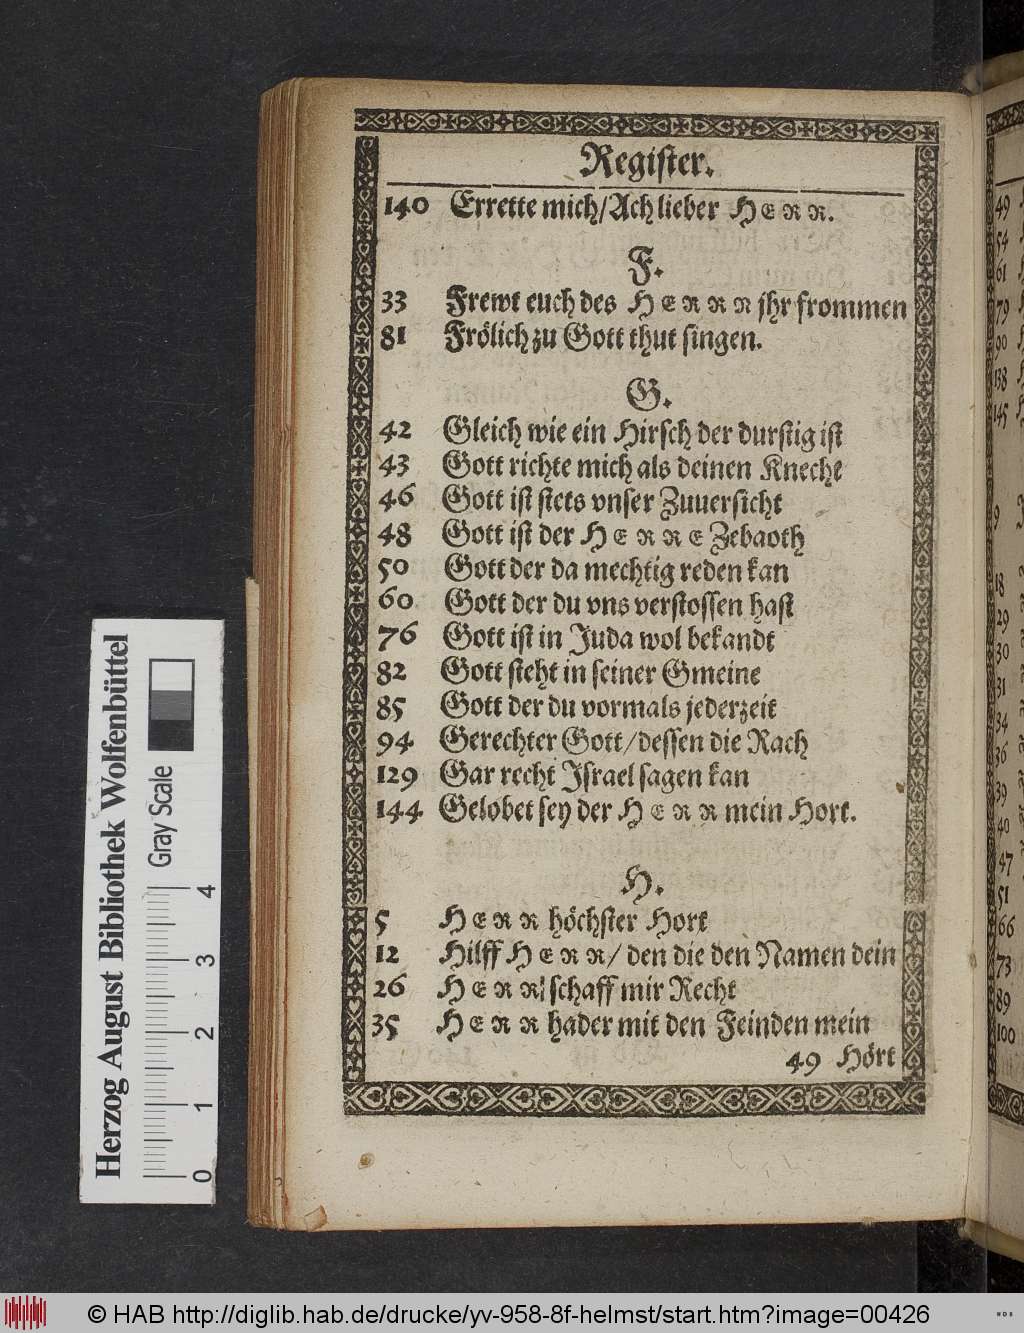 Register.
140 Errette mich/Ach lieber HERR.
F.
33 Frewt euch des HERRN jhr frommen
81 Frölich zu Gott thut singen.
G.
42 Gleich wie ein Hirsch der durstig ist
43 Gott richte mich als deinen Knecht
46 Gott ist stets vnser Zuuersicht
48 Gott ist der HERRE Zebaoth
50 Gott der da mechtig reden kan
60 Gott der du vns verstossen hast
76 Gott ist in Juda wol bekandt
82 Gott steht in seiner Gmeine
85 Gott der du vormals jederzeit
94 Gerechter Gott/dessen die Rach
129 Gar recht Israel sagen kan
144 Gelobet sey der HERR mein Hort.
H.
5 HERR höchster Hort
12 Hilff HERR/ den die den Namen dein
26 HERR/schaff mir Recht
35 HERR hader mit den Feinden mein
49 Hört
49
54
61
79
90
138
145
9
18
29
30
31
34
36
39
40
47
51
66
73
89
100
Herzog August Bibliothek Wolfenbüttel
Gray Scale
0 1 2 3 4
© HAB http://diglib.hab.de/drucke/yv-958-8f-helmst/start.htm?image=00426